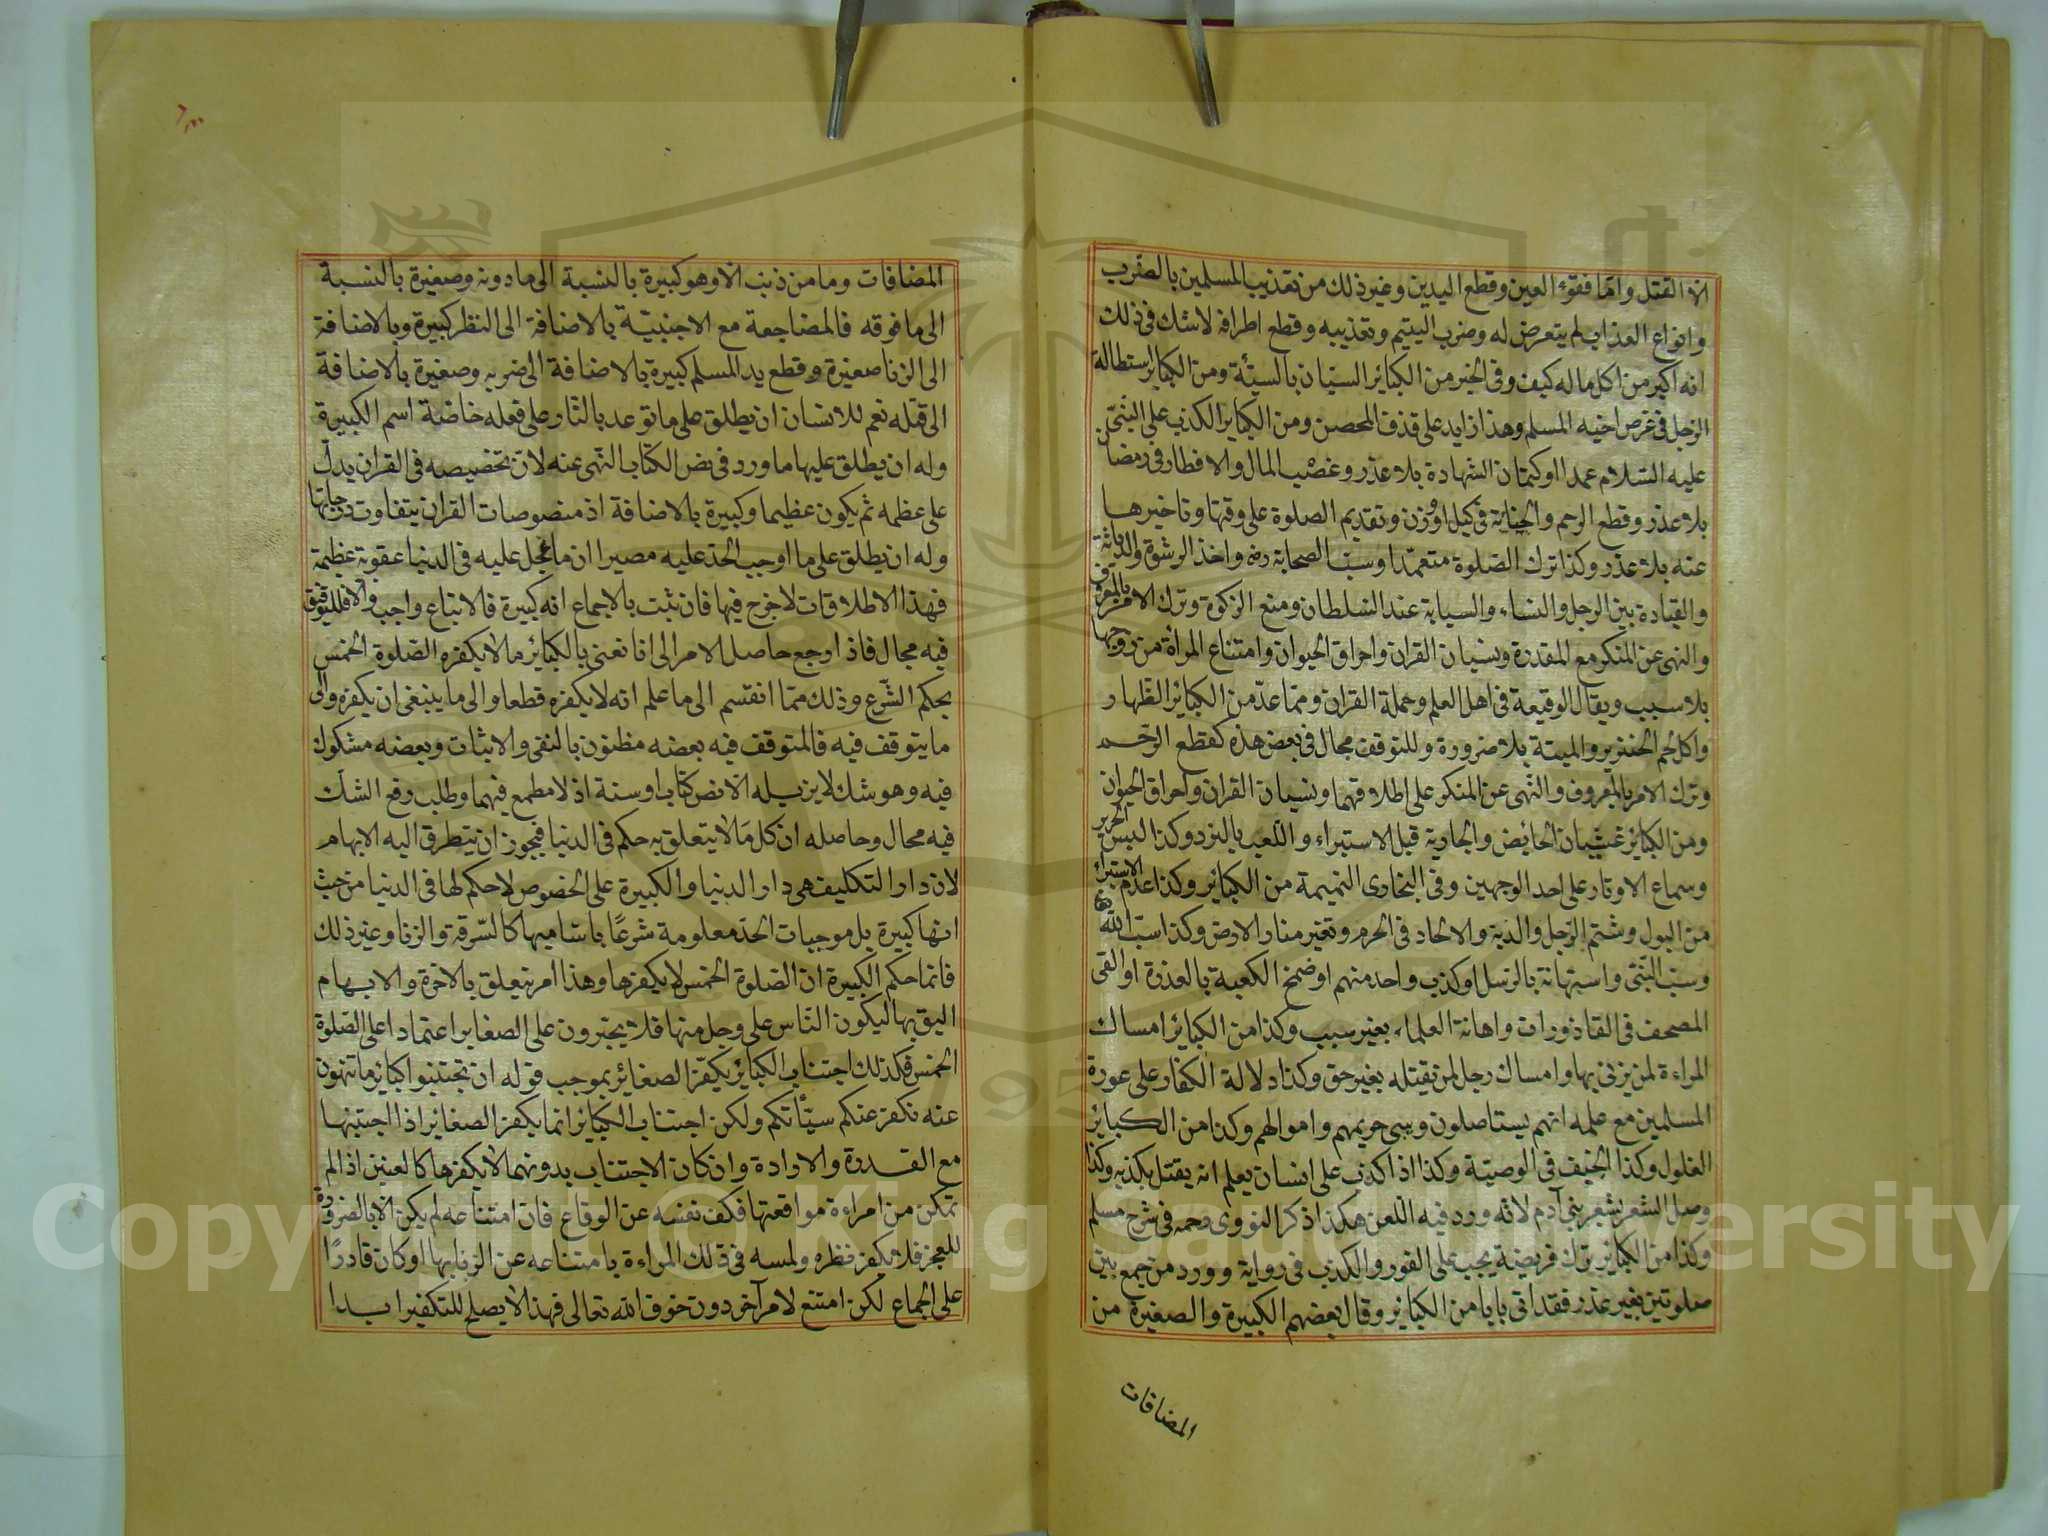 الا القتل واما فقوء العين وقطع اليدين وغير ذلك من تعذيب المسلمين بالضرب
وانواع العذاب لم يتعرض له وضرب اليتيم وتعذيبه وقطع اطرافه لا شك في ذلك
انه اكبر من اكل ماله كيف وفي الخبر من الكبائر السبتان بالسبّة ومن الكبائر استطالة
الرجل في عرض اخيه المسلم وهذا زايد على قذف المحصن ومن الكبائر الكذب على النبي
عليه السلام عمدا او كتمان الشهادة بلا عذر وغصب المال والافطار في رمضان
بلا عذر وقطع الرحم والخيانة في كيل او وزن وتقديم الصلوة على وقتها وتاخيرها
عنه بلا عذر وكذا ترك الصلوة متعمدا وسب الصحابة رضه واخذ الرشوة والدياثة
والقيادة بين الرجل والنساء والسعاية عند السلطان ومنع الزكوة وترك الامر بالمعروف
والنهى عن المنكر مع المقدرة ونسيان القران واحراق الحيوان وامتناع المرأة من زوجها
بلا سبب ويقال الوقيعة في اهل العلم وحملة القران ومما عدّ من الكبائر الظهار
واكل لحم الخنزير والميتة بلا ضرورة وللتوقف مجال في بعض هذه كقطع الرحم
وترك الامر بالمعروف والنهى عن المنكر على اطلاقهما ونسيان القران واحراق الحيوان
ومن الكبائر غشيان الحائض والجارية قبل الاستبراء واللعب بالنرد وكذا لبس الحرير
وسماع الاوتار على احد الوجهين وفي البخارى النميمة من الكبائر وكذا عدم الاستبراء
من البول وشتم الرجل والدية والالحاد في الحرم وتغير منار الارض وكذا سب الله تعا
وسب النبي واستهانة بالرسل او كذب واحد منهم او ضمخ الكعبة بالعذرة او القى
المصحف في القاذورات واهانة العلماء بغير سبب وكذا من الكبائر امساك
المراءة لمن يزنى بها وامساك رجل لمن يقتله بغير حق وكذا دلالة الكفار على عورة
المسلمين مع علمه انهم يستاصلون ويسبى حريمهم واموالهم وكذا من الكبائر
الغلول وكذا الحنيف في الوصية وكذا اذا كذب على انسان يعلم انه يقتل بكذبه وكذا
وصل الشعر بشعر بنى آدم لانه ورد فيه اللعن هكذا ذكر النووى رحمه في شرح مسلم
وكذا من الكبائر ترك فريضة يجب على الفور والكذب في رواية وورد من جمع بين
صلوتين بغير عذر فقد اتى بابا من الكبائر وقال بعضهم الكبيرة والصغيرة من
المضافات
المضافات وما من ذنب الا وهو كبيرة بالنسبة الى ما دونه وصغيرة بالنسبة
الى ما فوقه فالمضاجعة مع الاجنبيّة بالاضافة الى النظر كبيرة وبالاضافة
الى الزنا صغيرة وقطع يد المسلم كبيرة بالاضافة الى ضربه وصغيرة بالاضافة
الى قتله نعم للانسان ان يطلق على ما توعد بالنار على فعله خاصة اسم الكبيرة
وله ان يطلق عليها ما ورد في نص الكتاب النهى عنه لان تخصيصه في القران يدل
على عظمه ثم يكون عظيما وكبيرة بالاضافة اذ منصوصات القران يتفاوت درجاتها
وله ان يطلق على ما اوجب الحد عليه مصيرا ان ما عجل عليه في الدنيا عقوبة عظيمة
فهذا الاطلاقات لا خرج فيها فان ثبت بالاجماع انه كبيرة فالاتباع واجب والا فللتوقيق
فيه مجال فاذا وجع حاصل الامر الى انا نعنى بالكبائر ما لا يكفره الصلوة الخمس
بحكم الشرع وذلك مما انقسم الى ما علم انه لا يكفره قطعا والى ما ينبغى ان يكفره والى
ما يتوقف فيه فالمتوقف فيه بعضه مظنون بالنفى والاثبات وبعضه مشكوك
فيه وهو شك لا يزيله الا نص كتاب او سنة اذ لا مطمع فيهما وطلب رفع الشك
فيه محال وحاصله ان كل ما لا يتعلق به حكم في الدنيا فيجوز ان يتطرق اليه الابهام
لان دار التكليف هى دار الدنيا والكبيرة على الخصوص لا حكم لها في الدنيا من حيث
انها كبيرة بل موجبات الحد معلومة شرعًا باساميها كالسرقة والزنا وغير ذلك
فانما حكم الكبيرة ان الصلوة الخمس لا يكفرها وهذا امر يتعلق بالاخرة والابهام
اليق بها ليكون الناس على وجل منها فلا يجترون على الصغاير اعتمادا على الصلوة
الخمس فكذلك اجتناب الكبائر يكفر الصغائر بموجب قوله ان تجتنبوا كبائر ما تنهون
عنه نكفر عنكم سيئاتكم ولكن اجتناب الكبائر انما يكفر الصغائر اذا اجتنبها
مع القدرة والارادة وان كان الاجتناب بدونهما لا يكفرها كالعنين اذ الم
تمكن من امراءة مواقعتها فكف نفسه عن الوقاع فان امتناعه لم يكن الا بالضرورة
للعجز فلا يكفر نظره ولمسه في ذلك المراءة بامتناعه عن الزنا بها او كان قادرًا
على الجماع لكن امتنع لامر آخر دون خوف الله تعالى فهذا لا يصلح للتكفير ابدا
Copyright © King Saud University